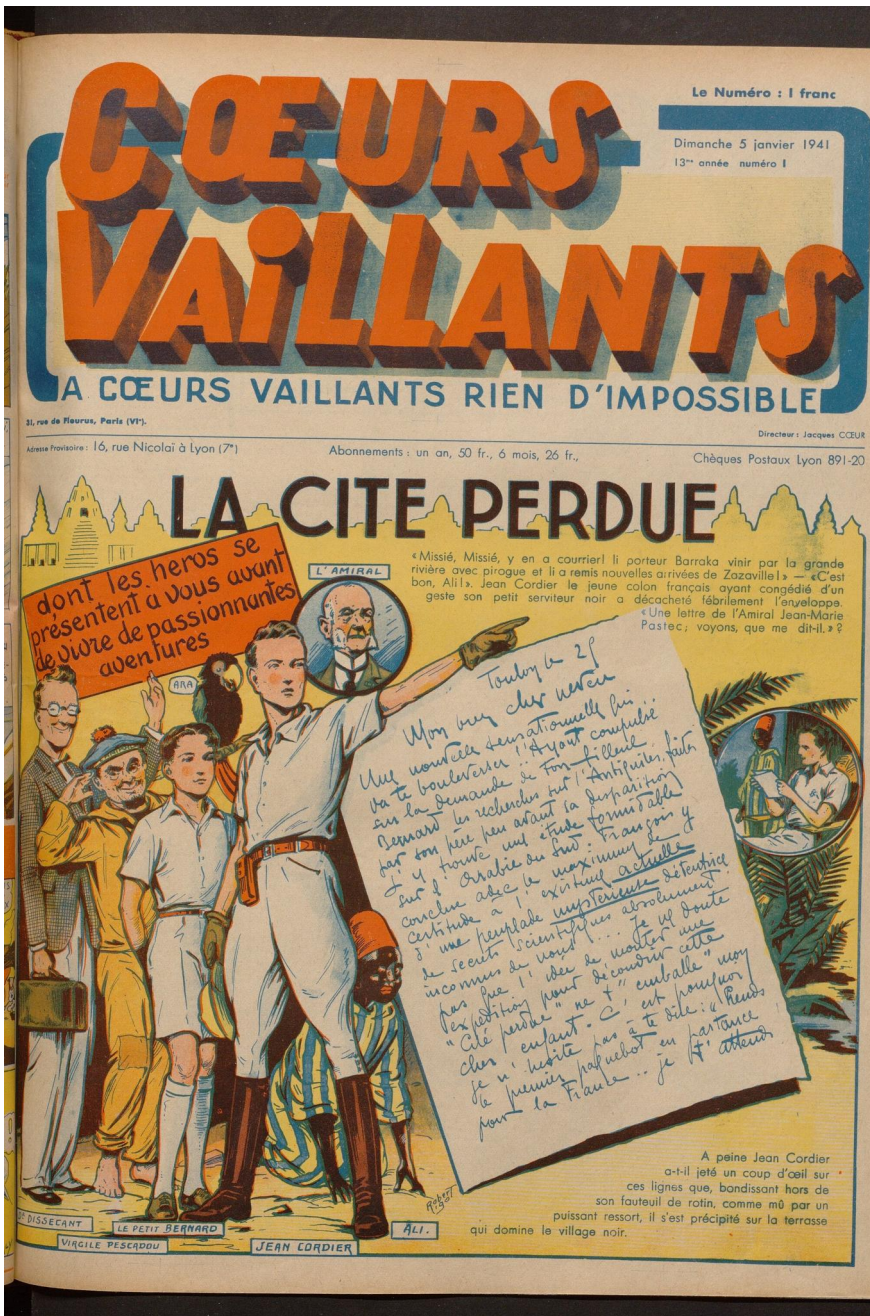 Le Numéro : 1 franc
CŒURS
Dimanche 5 janvier 1941
13me année numéro 1
VAiLLANTS
A CŒURS VAILLANTS RIEN D'IMPOSSIBLE
31, rue de Fleurus, Paris (VIe).
Directeur : Jacques CŒUR
Adresse Provisoire : 16, rue Nicolaï à Lyon (7e)
Abonnements : un an, 50 fr., 6 mois, 26 fr.,
Chèques Postaux Lyon 891-20
LA CITE PERDUE
dont les heros se
présentent a vous avant
de vivre de passionnantes
aventures
L'AMIRAL
ARA
«Missié, Missié, y en a courrier! li porteur Barraka vinir par la grande
rivière avec pirogue et li a remis nouvelles arrivées de Zozaville!» — «C'est
bon, Ali!». Jean Cordier le jeune colon français ayant congédié d'un
geste son petit serviteur noir a décacheté fébrilement l'enveloppe.
«Une lettre de l'Amiral Jean-Marie
Pastec; voyons, que me dit-il.»?
Toulon le 25
Mon vieux cher neveu
Une nouvelle sensationnelle qui..
va te bouleverser! Ayant compulsé
sur la demande de ton filleul
Bernard les recherches sur l'Antiquité, faites
par son père peu avant sa disparition
j'y trouve une étude formidable
sur l'Arabie du Sud. François y
conclue avec le maximum de
certitude a l'existence actuelle
d'une peuplade mysterieuse détentrice
de secrets scientifiques absolument
inconnus de nous!... Je ne doute
pas que l'idée de monter une
expédition pour découvrir cette
"Cité perdue" ne t'"emballe" mon
cher enfant. C'est pourquoi
je n'hesite pas à te dire : "Prends
le premier paquebot en partance
pour la France.. je t'attends
A peine Jean Cordier
a-t-il jeté un coup d'œil sur
ces lignes que, bondissant hors de
son fauteuil de rotin, comme mû par un
puissant ressort, il s'est précipité sur la terrasse
qui domine le village noir.
DISSECANT
VIRGILE PESCADOU
LE PETIT BERNARD
JEAN CORDIER
ALI.
Robert